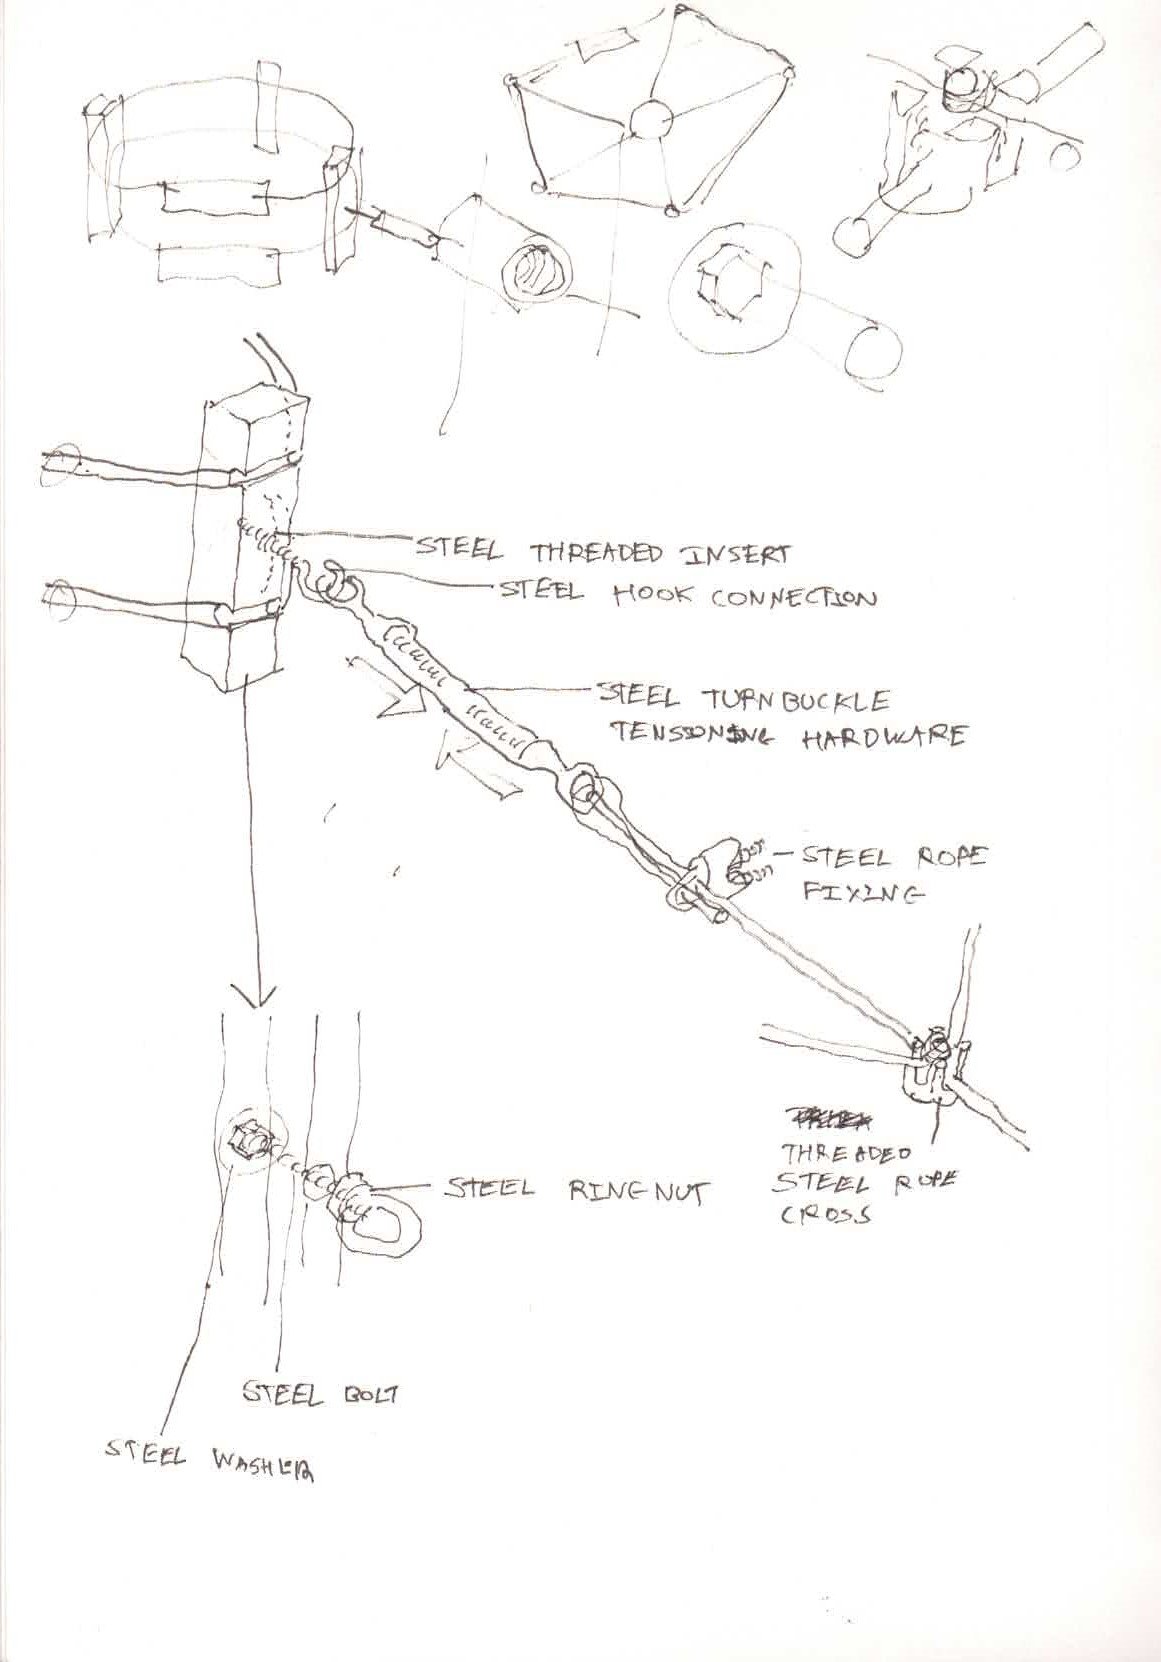 STEEL THREADED INSERT
STEEL HOOK CONNECTION
STEEL TURNBUCKLE
TENSIONING HARDWARE
STEEL ROPE
FIXING
THREADED
STEEL ROPE
CROSS
STEEL RINGNUT
STEEL BOLT
STEEL WASHER